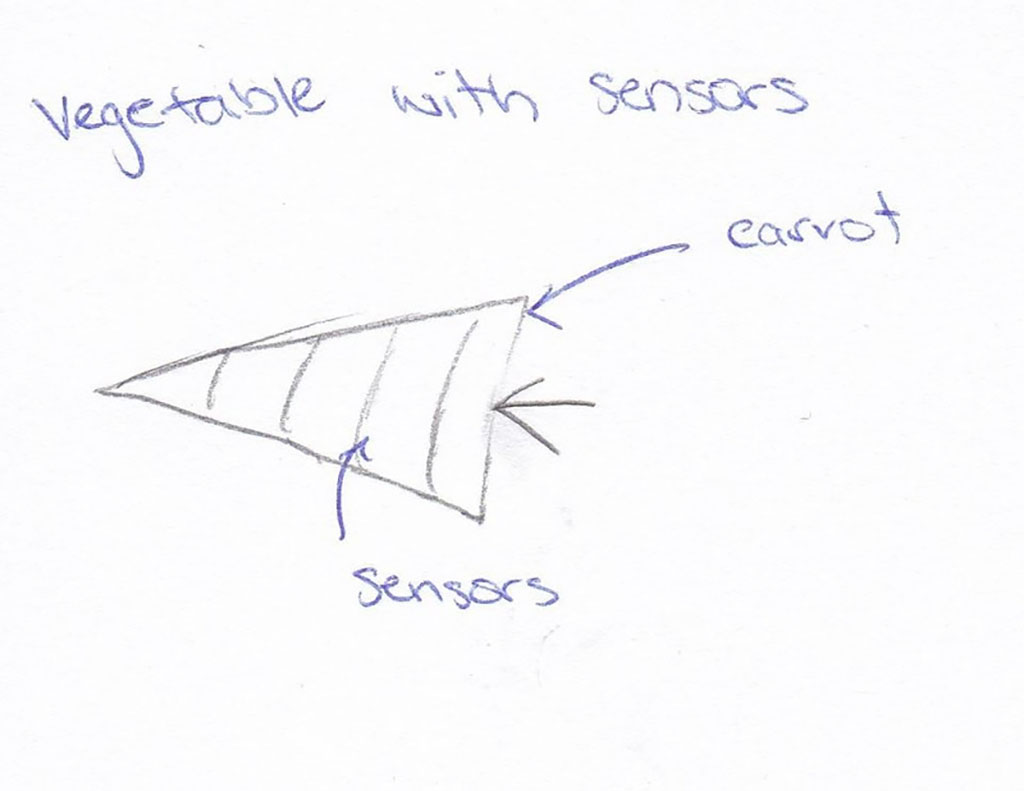 Vegetable with sensors
carrot
sensors